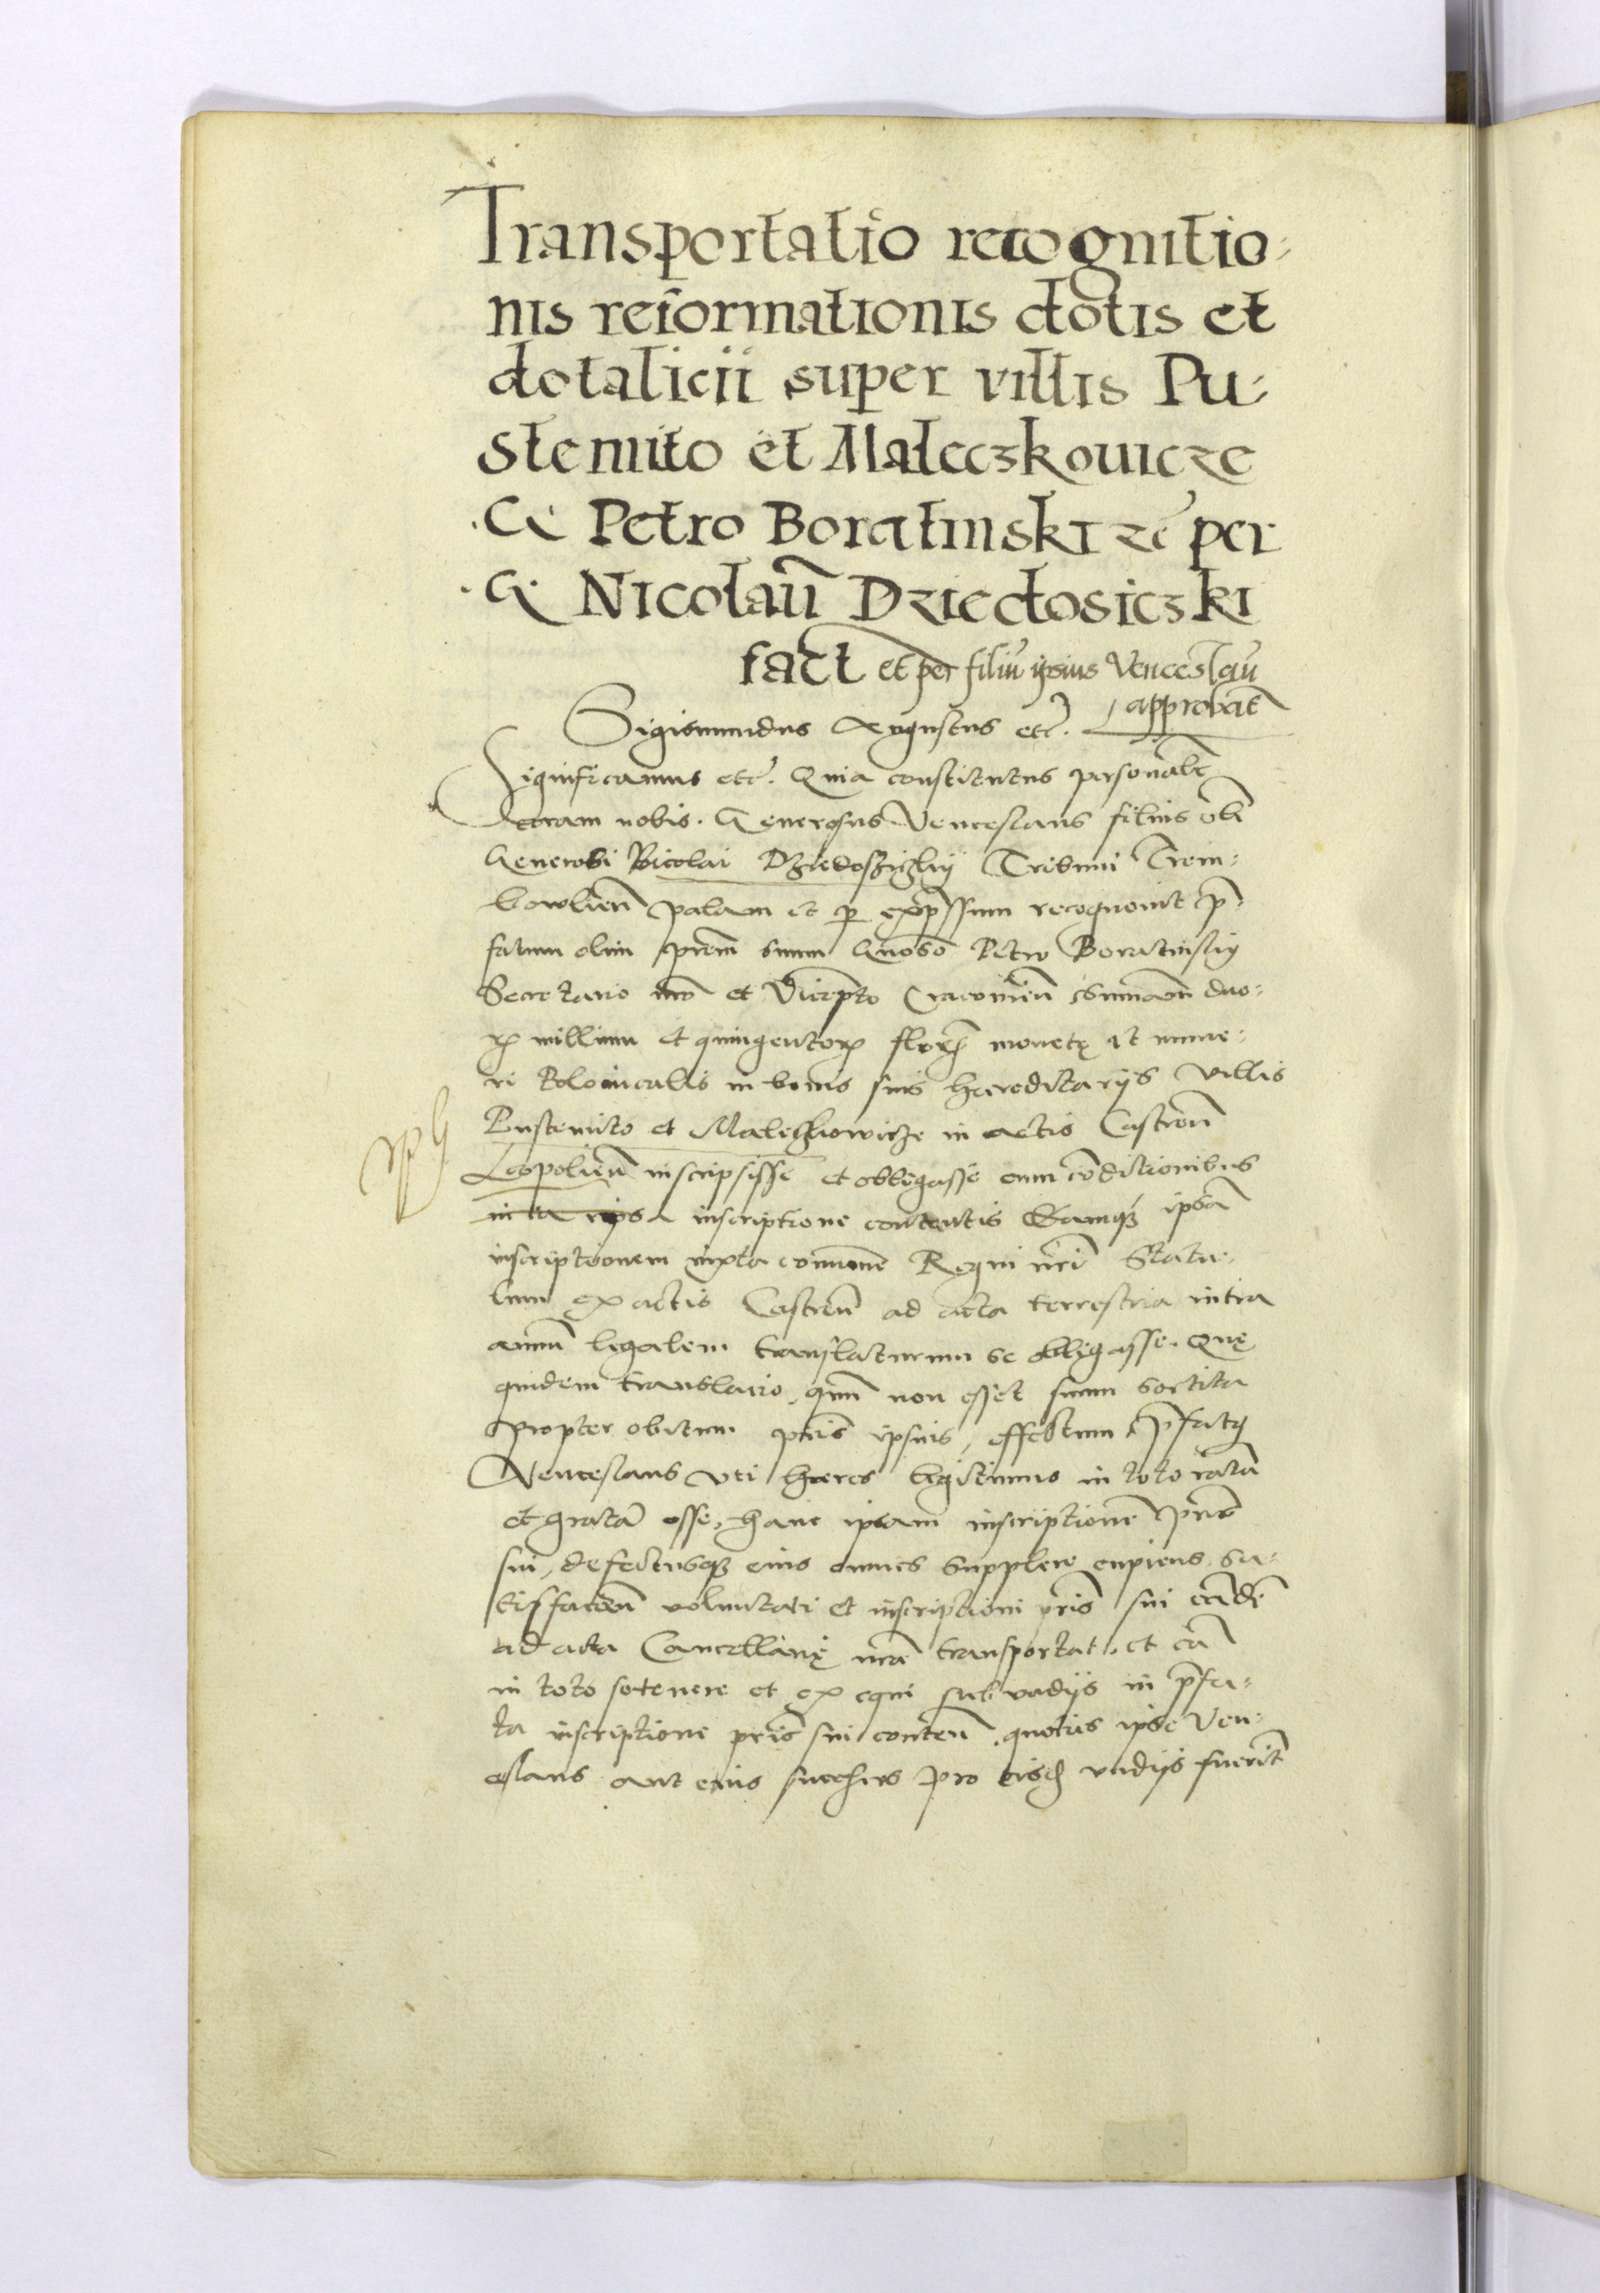 Transportatio recognitio-
nis reformationis dotis et
dotalicii super villis Pu-
stemito et Maleczkouicze
G Petro Boratinski zc̃ per
G Nicolaũ Dziedosiczki
fact̃ et per filiũ ipsius Venceslaũ
approbat̃
Sigismundus Augustus etc̃.
Significamus etc̃. Quia constitutus personalit̃
coram nobis. Generosus Venceslaus filius
Generosi Nicolai Dzieduschiczkij Tribuni Trem-
bowlien̄ palam et p̱ expressum recognouit p̄-
fatum olim p̄rem suum Gnoso Petro Boratinskij
Secretario n̄ro et Cracouien̄ summam duo-
rꝫ millium et quingentorꝫ florenꝫ monetę et nume-
ri Polonicalis in bonis suis haereditarijs villis
Pustemito et Maleczkowicze in actis Castren̄
Leopolien̄ inscripsisse et obligasse cum cōditionibus
in ea ipsa inscriptione contentis Eamqꝫ ipsā
inscriptionem iuxta communē Regni n̄ri Statu-
tum ex actis Castren̄ ad acta terrestria intra
annū legalem translaturum se obligasse. Quę
quidem translatio, quū non esset suum sortita
propter obitum p̄ris ipsius, effectum p̄fatꝰ
Venceslaus vti haeres legitimus in toto ratā
et gratā esse, hanc ipsam inscriptionē p̄ris
sui, defectusqꝫ eius omnes supplere cupiens, sa-
tisfacien̄ voluntati et inscriptioni p̄ris sui eādē
ad acta Cancellarię n̄rae transportat, et eā
in toto se tenere et exequi sub vadijs in p̄fa-
ta inscriptione p̄ris sui conten̄. quoties ipse Ven-
ceslaus aut eius succ̄sores pro eisd̄ vadijs fuerint